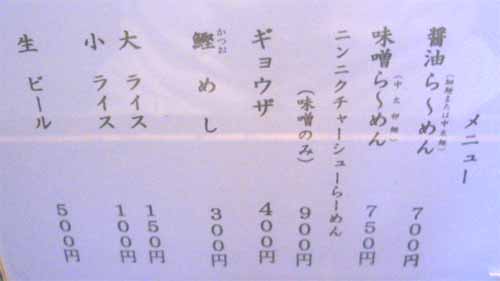 メニュー
醤油ら～めん
(細麺または中太麺)
700円
味噌ら～めん
(中太卵麺)
750円
ニンニクチャーシューらーめん
(味噌のみ)
900円
ギョウザ
400円
鰹めし
かつお
300円
大 ライス
150円
小 ライス
100円
生 ビール
500円